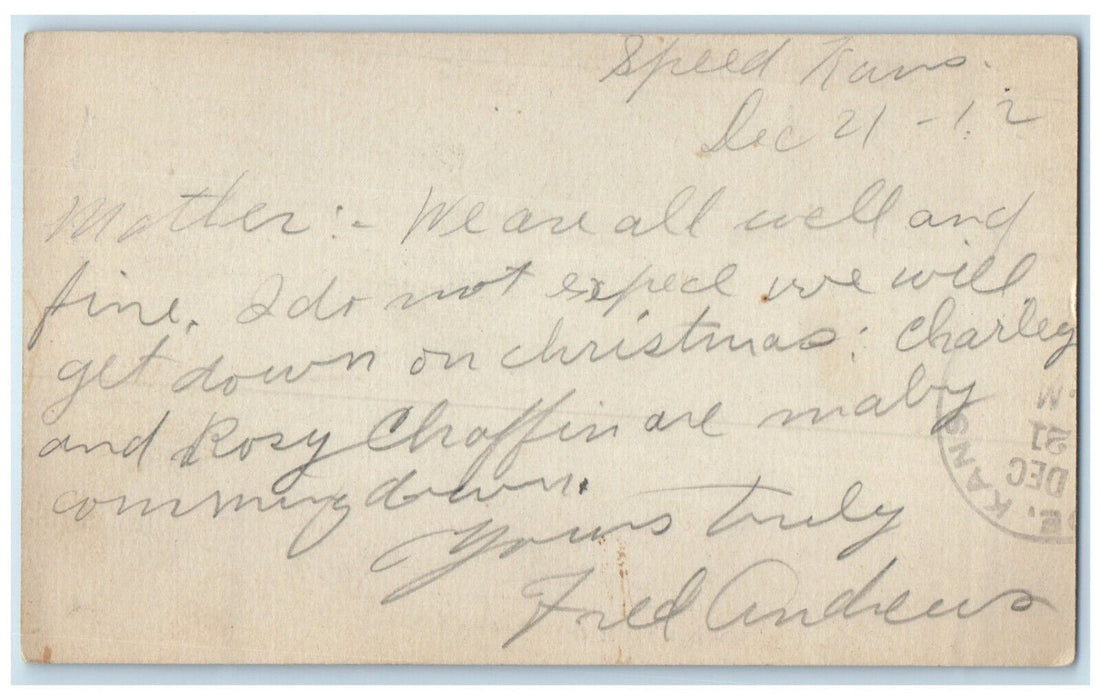 Speed Kans.
Dec 21 - 12
Mother:- We are all well and
fine. I do not expect we will
get down on christmas: Charley
and Rosy Chaffin are maby
comming down.
Yours Truly
Fred Andrews
E, KANS
DEC
21
M